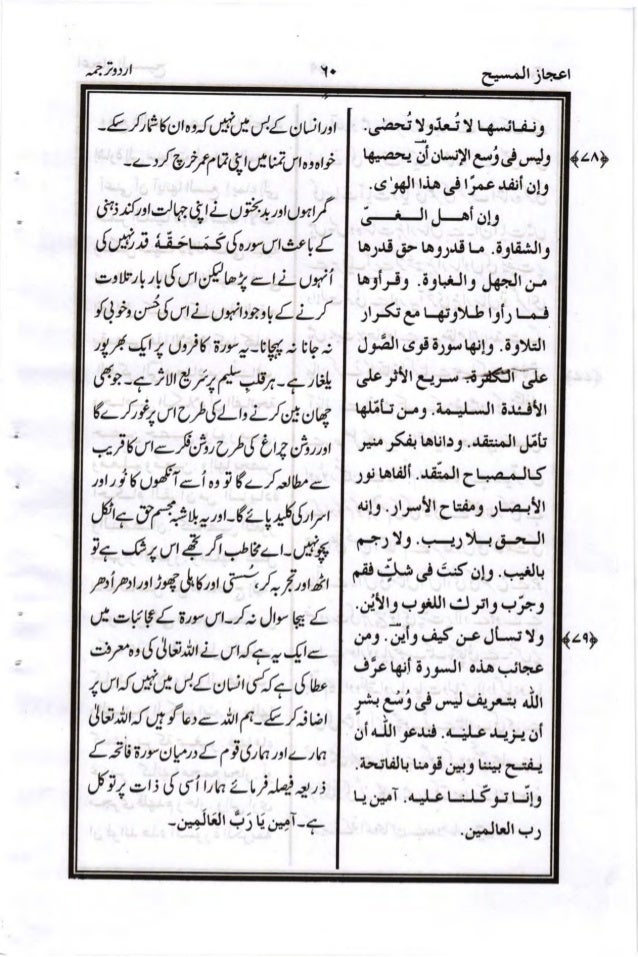 اعجاز المسیح
۶۰
اردو ترجمہ
ونفائسها لا تُعدّ ولا تُحصٰى.
﴿۷۸﴾ وليس فى وُسع الإنسان أن يحصيها
وإن أنفد عمرًا فى هذا الهوٰى.
وإن أهل الغىّ
والشقاوة. ما قدروها حق قدرها
من الجهل والغباوة. وقرأوها
فما رأوا طلاوتها مع تكرار
التلاوة. وإنها سورة قوى الصَّول
على الكفرة. سريع الأثر على
الأفئدة السليمة. ومن تأمّلها
تأمّل المنتقد. وداناها بفكر منير
كالمصباح المتّقد. ألفاها نور
الأبصار ومفتاح الأسرار. وإنه
الحق بلا ريب. ولا رجم
بالغيب. وإن كنتَ فى شك فقم
وجرّب واترك اللغوب والأيْن.
﴿۷۹﴾ ولا تسأل عن كيف وأين. ومن
عجائب هذه السورة أنها عرَّف
الله بتعريف ليس فى وُسع بشرٍ
أن يزيد عليه. فندعو الله أن
يفتح بيننا وبين قومنا بالفاتحة.
وإنّا توكّلنا عليه. آمين يا
رب العالمين.
اور انسان کے بس میں نہیں کہ وہ ان کا شمار کر سکے۔
خواہ وہ اس تمنا میں اپنی تمام عمر خرچ کر دے۔
گمراہوں اور بدبختوں نے اپنی جہالت اور کند ذہنی
کے باعث اس سورہ کی كَمَاحَقُّهٗ قدر نہیں کی
اُنہوں نے اسے پڑھا لیکن اس کی بار بار تلاوت
کرنے کے باوجود انہوں نے اس کی حُسن و خوبی کو
نہ جانا نہ پہچانا۔ یہ سورۃ کافروں پر ایک بھرپور
یلغار ہے۔ ہر قلبِ سلیم پر سریع الاثر ہے۔ جو بھی
چھان بین کرنے والے کی طرح اس پر غور کرے گا
اور روشن چراغ کی طرح روشن فکر سے اس کا قریب
سے مطالعہ کرے گا تو وہ اُسے آنکھوں کا نور اور
اسرار کی کلید پائے گا۔ اور یہ بلاشبہ مجسم حق ہے اٹکل
پچو نہیں۔ اے مخاطب اگر تجھے اس پر شک ہے تو
اٹھ اور تجربہ کر، سُستی اور کاہلی چھوڑ اور ادھر اُدھر
کے بیجا سوال نہ کر۔ اس سورۃ کے عجائبات میں
سے ایک یہ ہے کہ اس نے اللہ تعالیٰ کی وہ معرفت
عطا کی ہے کہ کسی انسان کے بس میں نہیں کہ اس پر
اضافہ کر سکے۔ ہم اللہ سے دعا گو ہیں کہ اللہ تعالیٰ
ہمارے اور ہماری قوم کے درمیان سورۃ فاتحہ کے
ذریعہ فیصلہ فرمائے ہمارا اُسی کی ذات پر توکل
ہے۔ آمِين يَا رَبَّ العَالَمِين۔